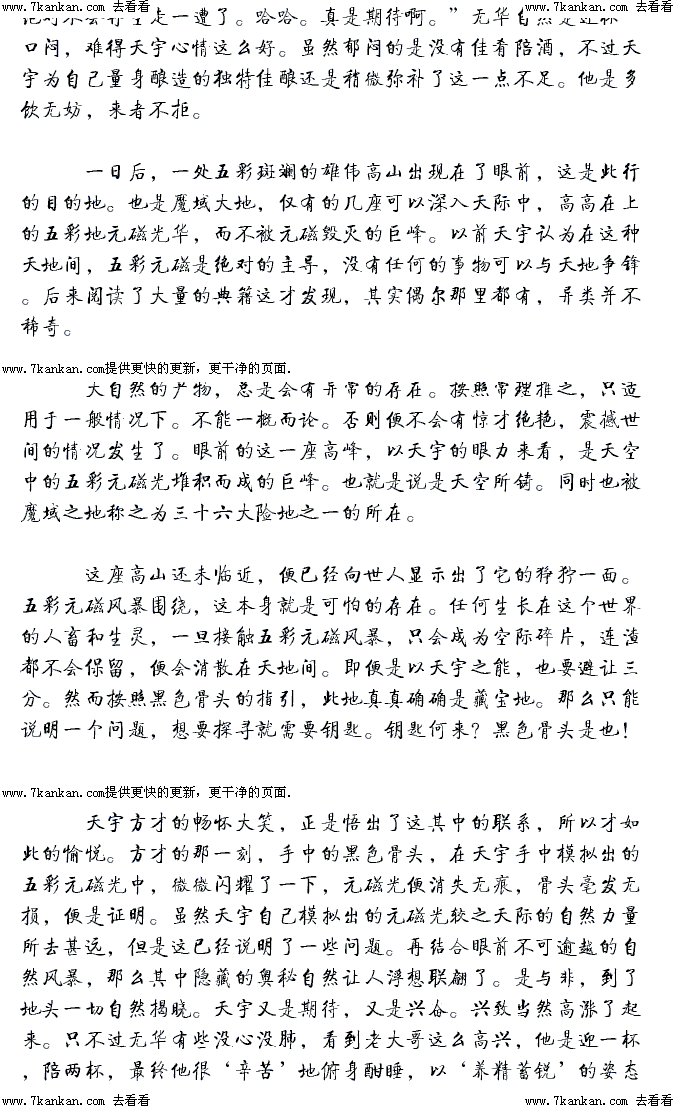 www.7kankan.com 去看看 www.7kankan.com 去看看
口闷，难得天宇心情这么好。虽然郁闷的是没有佳肴陪酒，不过天
宇为自己量身酿造的独特佳酿还是稍微弥补了这一点不足。他是多
饮无妨，来者不拒。
一日后，一处五彩斑斓的雄伟高山出现在了眼前，这是此行
的目的地。也是魔域大地，仅有的几座可以深入天际中，高高在上
的五彩地元磁光华，而不被元磁毁灭的巨峰。以前天宇认为在这种
天地间，五彩元磁是绝对的主导，没有任何的事物可以与天地争锋
。后来阅读了大量的典籍这才发现，其实偶尔那里都有，异类并不
稀奇。
www.7kankan.com提供更快的更新，更干净的页面.
大自然的产物，总是会有异常的存在。按照常理推之，只适
用于一般情况下。不能一概而论。否则便不会有惊才绝艳，震撼世
间的情况发生了。眼前的这一座高峰，以天宇的眼力来看，是天空
中的五彩元磁光堆积而成的巨峰。也就是说是天空所铸。同时也被
魔域之地称之为三十六大险地之一的所在。
这座高山还未临近，便已经向世人显示出了它的狰狞一面。
五彩元磁风暴围绕，这本身就是可怕的存在。任何生长在这个世界
的人畜和生灵，一旦接触五彩元磁风暴，只会成为空际碎片，连渣
都不会保留，便会消散在天地间。即便是以天宇之能，也要避让三
分。然而按照黑色骨头的指引，此地真真确确是藏宝地。那么只能
说明一个问题，想要探寻就需要钥匙。钥匙何来？黑色骨头是也！
www.7kankan.com提供更快的更新，更干净的页面.
天宇方才的畅怀大笑，正是悟出了这其中的联系，所以才如
此的愉悦。方才的那一刻，手中的黑色骨头，在天宇手中模拟出的
五彩元磁光中，微微闪耀了一下，元磁光便消失无痕，骨头毫发无
损，便是证明。虽然天宇自己模拟出的元磁光较之天际的自然力量
所去甚远，但是这已经说明了一些问题。再结合眼前不可逾越的自
然风暴，那么其中隐藏的奥秘自然让人浮想联翩了。是与非，到了
地头一切自然揭晓。天宇又是期待，又是兴奋。兴致当然高涨了起
来。只不过无华有些没心没肺，看到老大哥这么高兴，他是迎一杯
，陪两杯，最终他很‘辛苦’地俯身酣睡，以‘养精蓄锐’的姿态
www.7kankan.com 去看看 www.7kankan.com 去看看